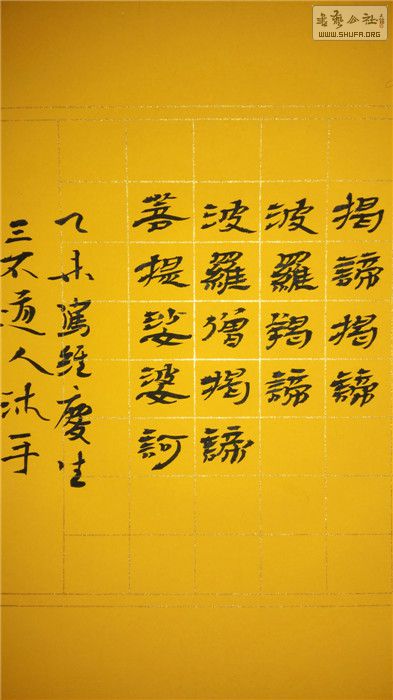 揭諦揭諦
波羅羯諦
波羅僧揭諦
菩提娑婆訶
乙未寫經慶生
三不道人沐手
書藝公社
WWW.SHUFA.ORG